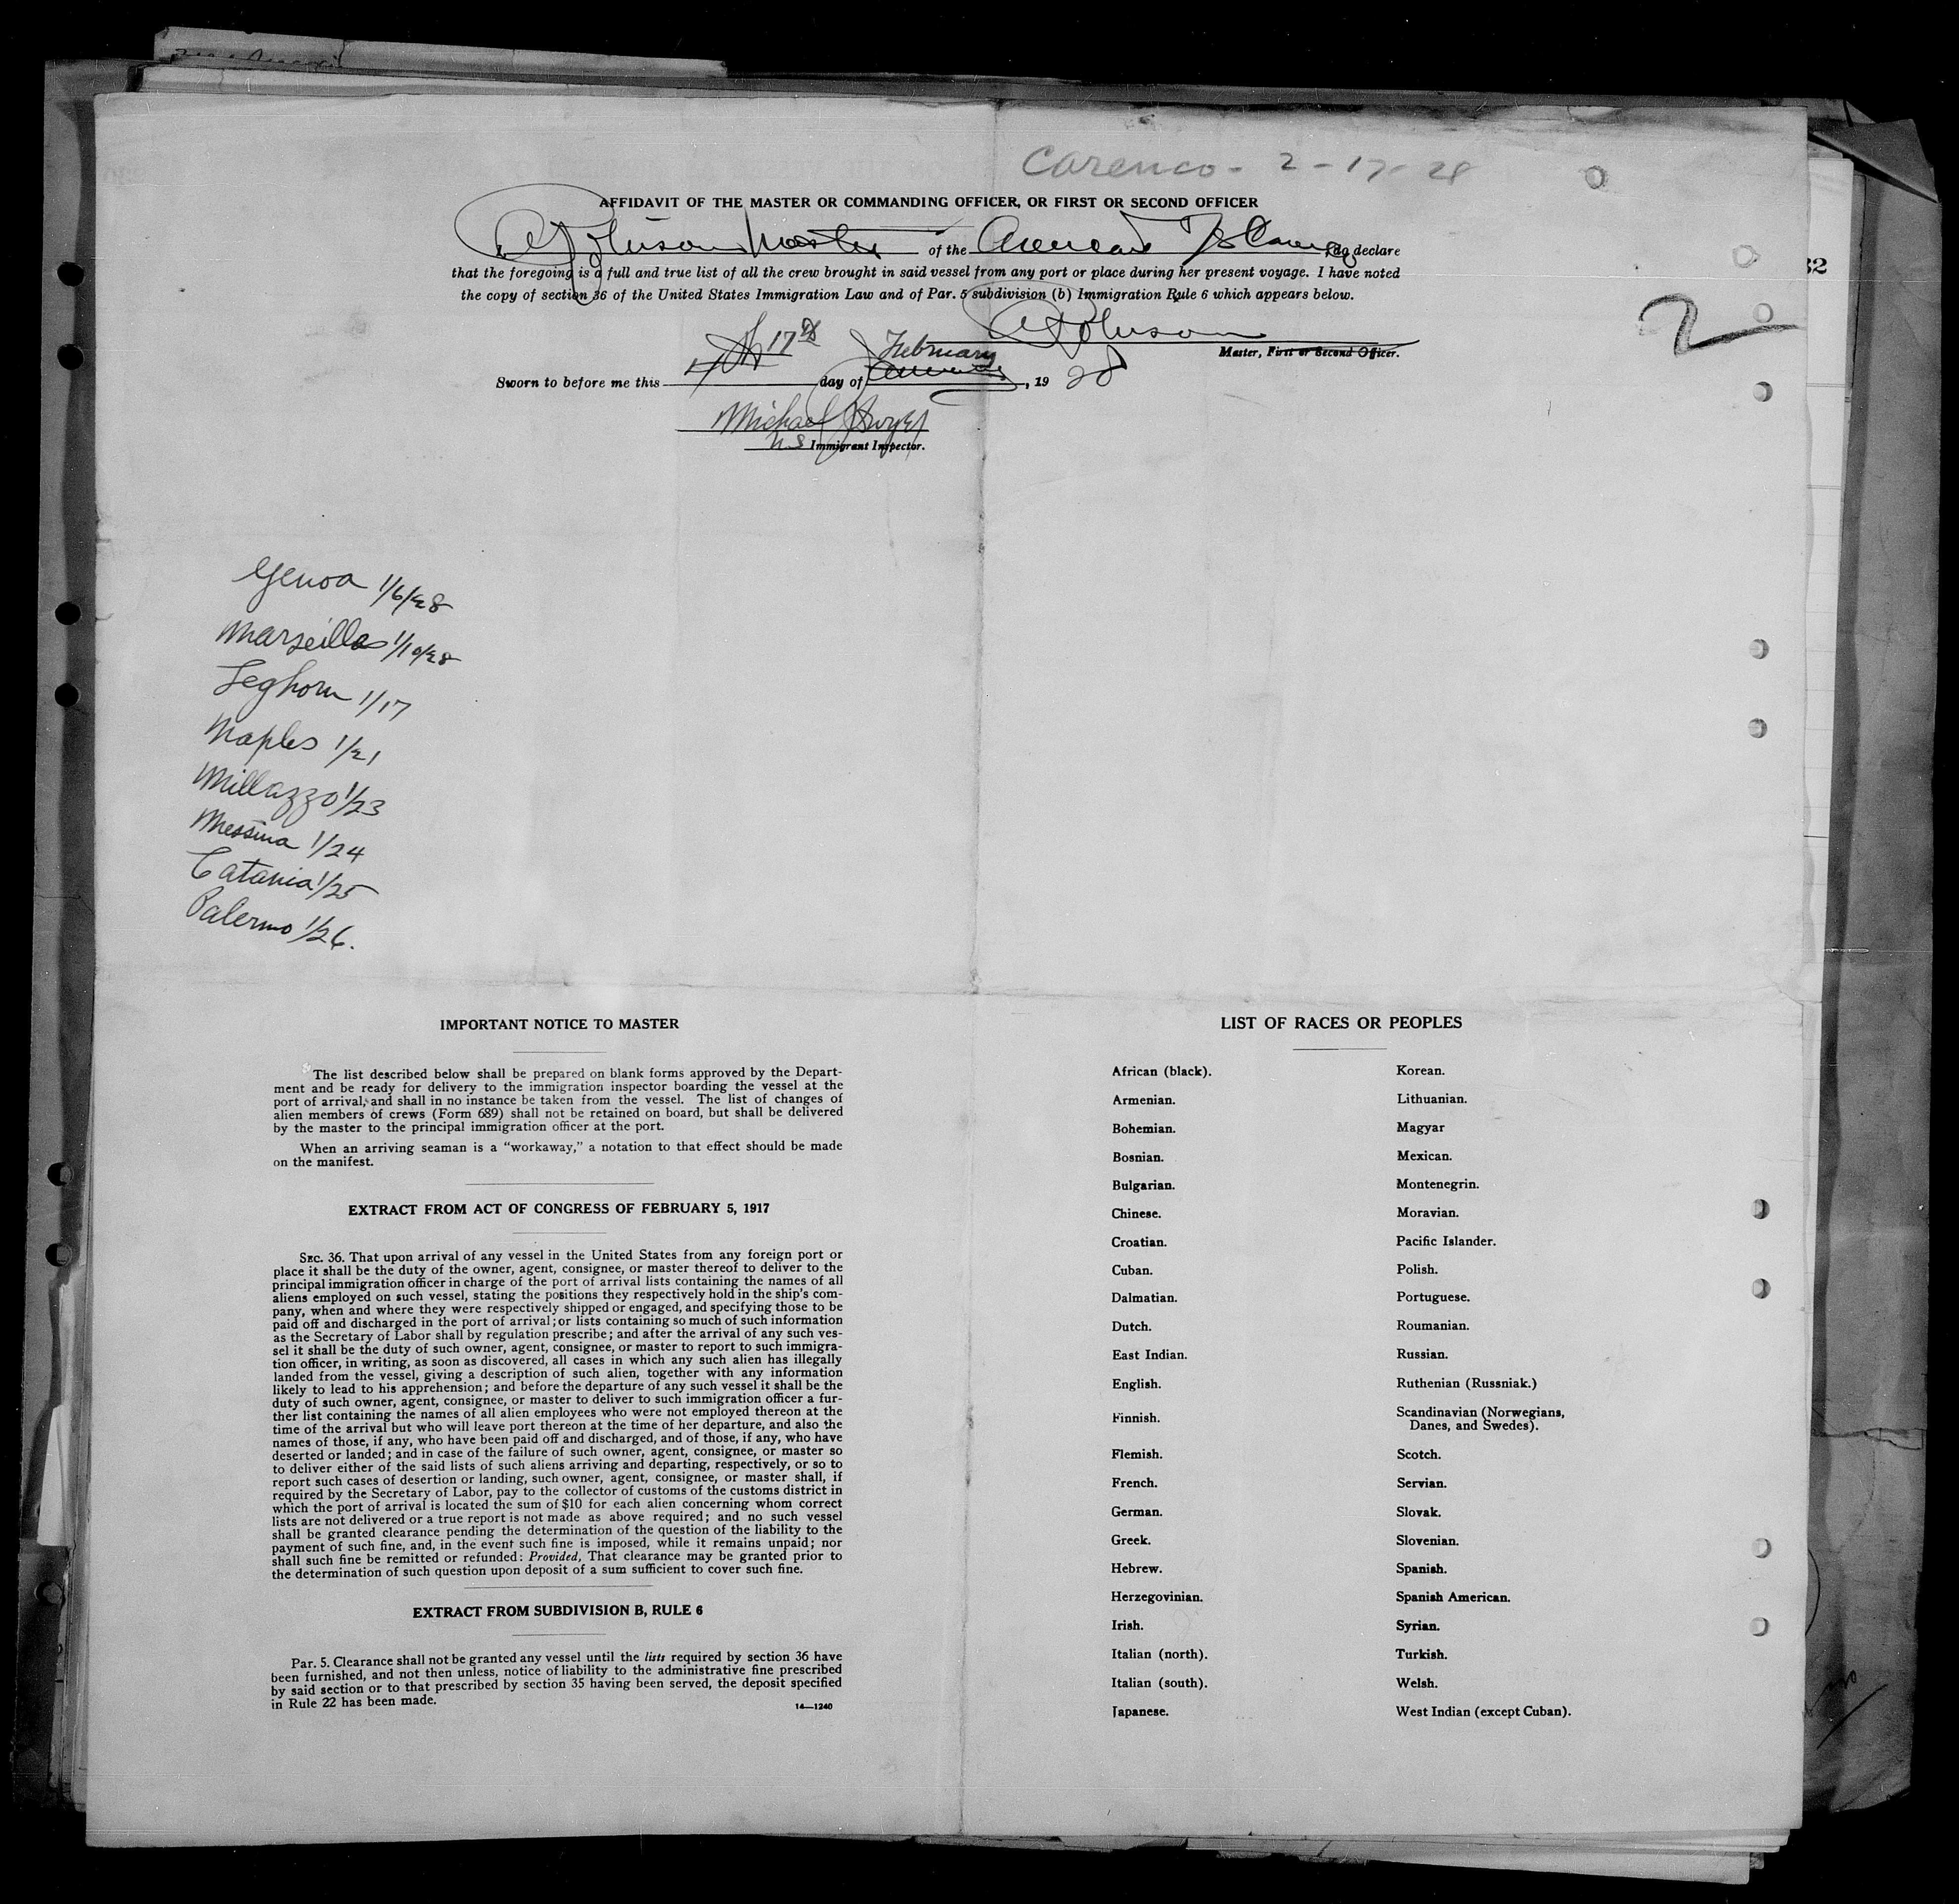 Carenco - 2 - 17 - 28
AFFIDAVIT OF THE MASTER OR COMMANDING OFFICER, OR FIRST OR SECOND OFFICER
Johnson Master of the American , do declare
that the foregoing is a full and true list of all the crew brought in said vessel from any port or place during her present voyage. I have noted
the copy of section 36 of the United States Immigration Law and of Par. 5 subdivision (b) Immigration Rule 6 which appears below.
Johnson
2
32
Master, First or Second Officer.
17th February
Sworn to before me this day of , 19 28
Michael Dwyer
US Immigrant Inspector.
Genoa 1/6/28
Marseilles 1/10/28
Leghorn 1/17
Naples 1/21
Millazzo 1/23
Messina 1/24
Catania 1/25
Palermo 1/26.
IMPORTANT NOTICE TO MASTER
The list described below shall be prepared on blank forms approved by the Depart-
ment and be ready for delivery to the immigration inspector boarding the vessel at the
port of arrival, and shall in no instance be taken from the vessel. The list of changes of
alien members of crews (Form 689) shall not be retained on board, but shall be delivered
by the master to the principal immigration officer at the port.
When an arriving seaman is a “workaway,” a notation to that effect should be made
on the manifest.
EXTRACT FROM ACT OF CONGRESS OF FEBRUARY 5, 1917
SEC. 36. That upon arrival of any vessel in the United States from any foreign port or
place it shall be the duty of the owner, agent, consignee, or master thereof to deliver to the
principal immigration officer in charge of the port of arrival lists containing the names of all
aliens employed on such vessel, stating the positions they respectively hold in the ship's com-
pany, when and where they were respectively shipped or engaged, and specifying those to be
paid off and discharged in the port of arrival; or lists containing so much of such information
as the Secretary of Labor shall by regulation prescribe; and after the arrival of any such ves-
sel it shall be the duty of such owner, agent, consignee, or master to report to such immigra-
tion officer, in writing, as soon as discovered, all cases in which any such alien has illegally
landed from the vessel, giving a description of such alien, together with any information
likely to lead to his apprehension; and before the departure of any such vessel it shall be the
duty of such owner, agent, consignee, or master to deliver to such immigration officer a fur-
ther list containing the names of all alien employees who were not employed thereon at the
time of the arrival but who will leave port thereon at the time of her departure, and also the
names of those, if any, who have been paid off and discharged, and of those, if any, who have
deserted or landed; and in case of the failure of such owner, agent, consignee, or master so
to deliver either of the said lists of such aliens arriving and departing, respectively, or so to
report such cases of desertion or landing, such owner, agent, consignee, or master shall, if
required by the Secretary of Labor, pay to the collector of customs of the customs district in
which the port of arrival is located the sum of $10 for each alien concerning whom correct
lists are not delivered or a true report is not made as above required; and no such vessel
shall be granted clearance pending the determination of the question of the liability to the
payment of such fine, and, in the event such fine is imposed, while it remains unpaid; nor
shall such fine be remitted or refunded: Provided, That clearance may be granted prior to
the determination of such question upon deposit of a sum sufficient to cover such fine.
EXTRACT FROM SUBDIVISION B, RULE 6
Par. 5. Clearance shall not be granted any vessel until the lists required by section 36 have
been furnished, and not then unless, notice of liability to the administrative fine prescribed
by said section or to that prescribed by section 35 having been served, the deposit specified
in Rule 22 has been made.
14—1240
LIST OF RACES OR PEOPLES
African (black).
Armenian.
Bohemian.
Bosnian.
Bulgarian.
Chinese.
Croatian.
Cuban.
Dalmatian.
Dutch.
East Indian.
English.
Finnish.
Flemish.
French.
German.
Greek.
Hebrew.
Herzegovinian.
Irish.
Italian (north).
Italian (south).
Japanese.
Korean.
Lithuanian.
Magyar
Mexican.
Montenegrin.
Moravian.
Pacific Islander.
Polish.
Portuguese.
Roumanian.
Russian.
Ruthenian (Russniak.)
Scandinavian (Norwegians,
Danes, and Swedes).
Scotch.
Servian.
Slovak.
Slovenian.
Spanish.
Spanish American.
Syrian.
Turkish.
Welsh.
West Indian (except Cuban).